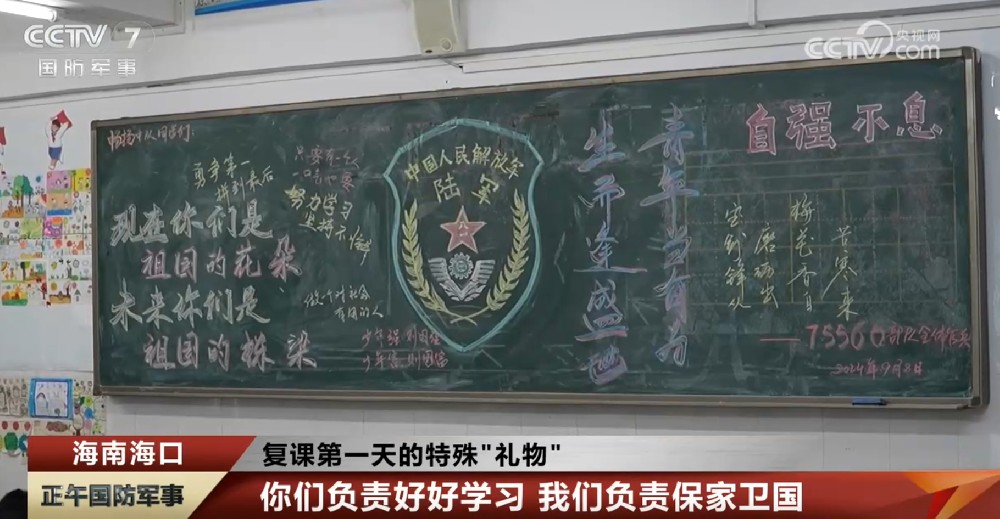 CCTV 7
国防军事
CCTV.com
央视网
同学们:
勇争第一
拼到最后
努力学习
坚持不懈
现在你们是
祖国的花朵
未来你们是
祖国的栋梁
做个对社会
有用的人
少年强则国强
少年富则国富
中国人民解放军
陆军
八一
青年当有为
生而逢盛世
自强不息
宝剑锋从
磨砺出
梅花香自
苦寒来
——75560部队全体官兵
2024年9月8日
海南海口
复课第一天的特殊"礼物"
正午国防军事
你们负责好好学习 我们负责保家卫国